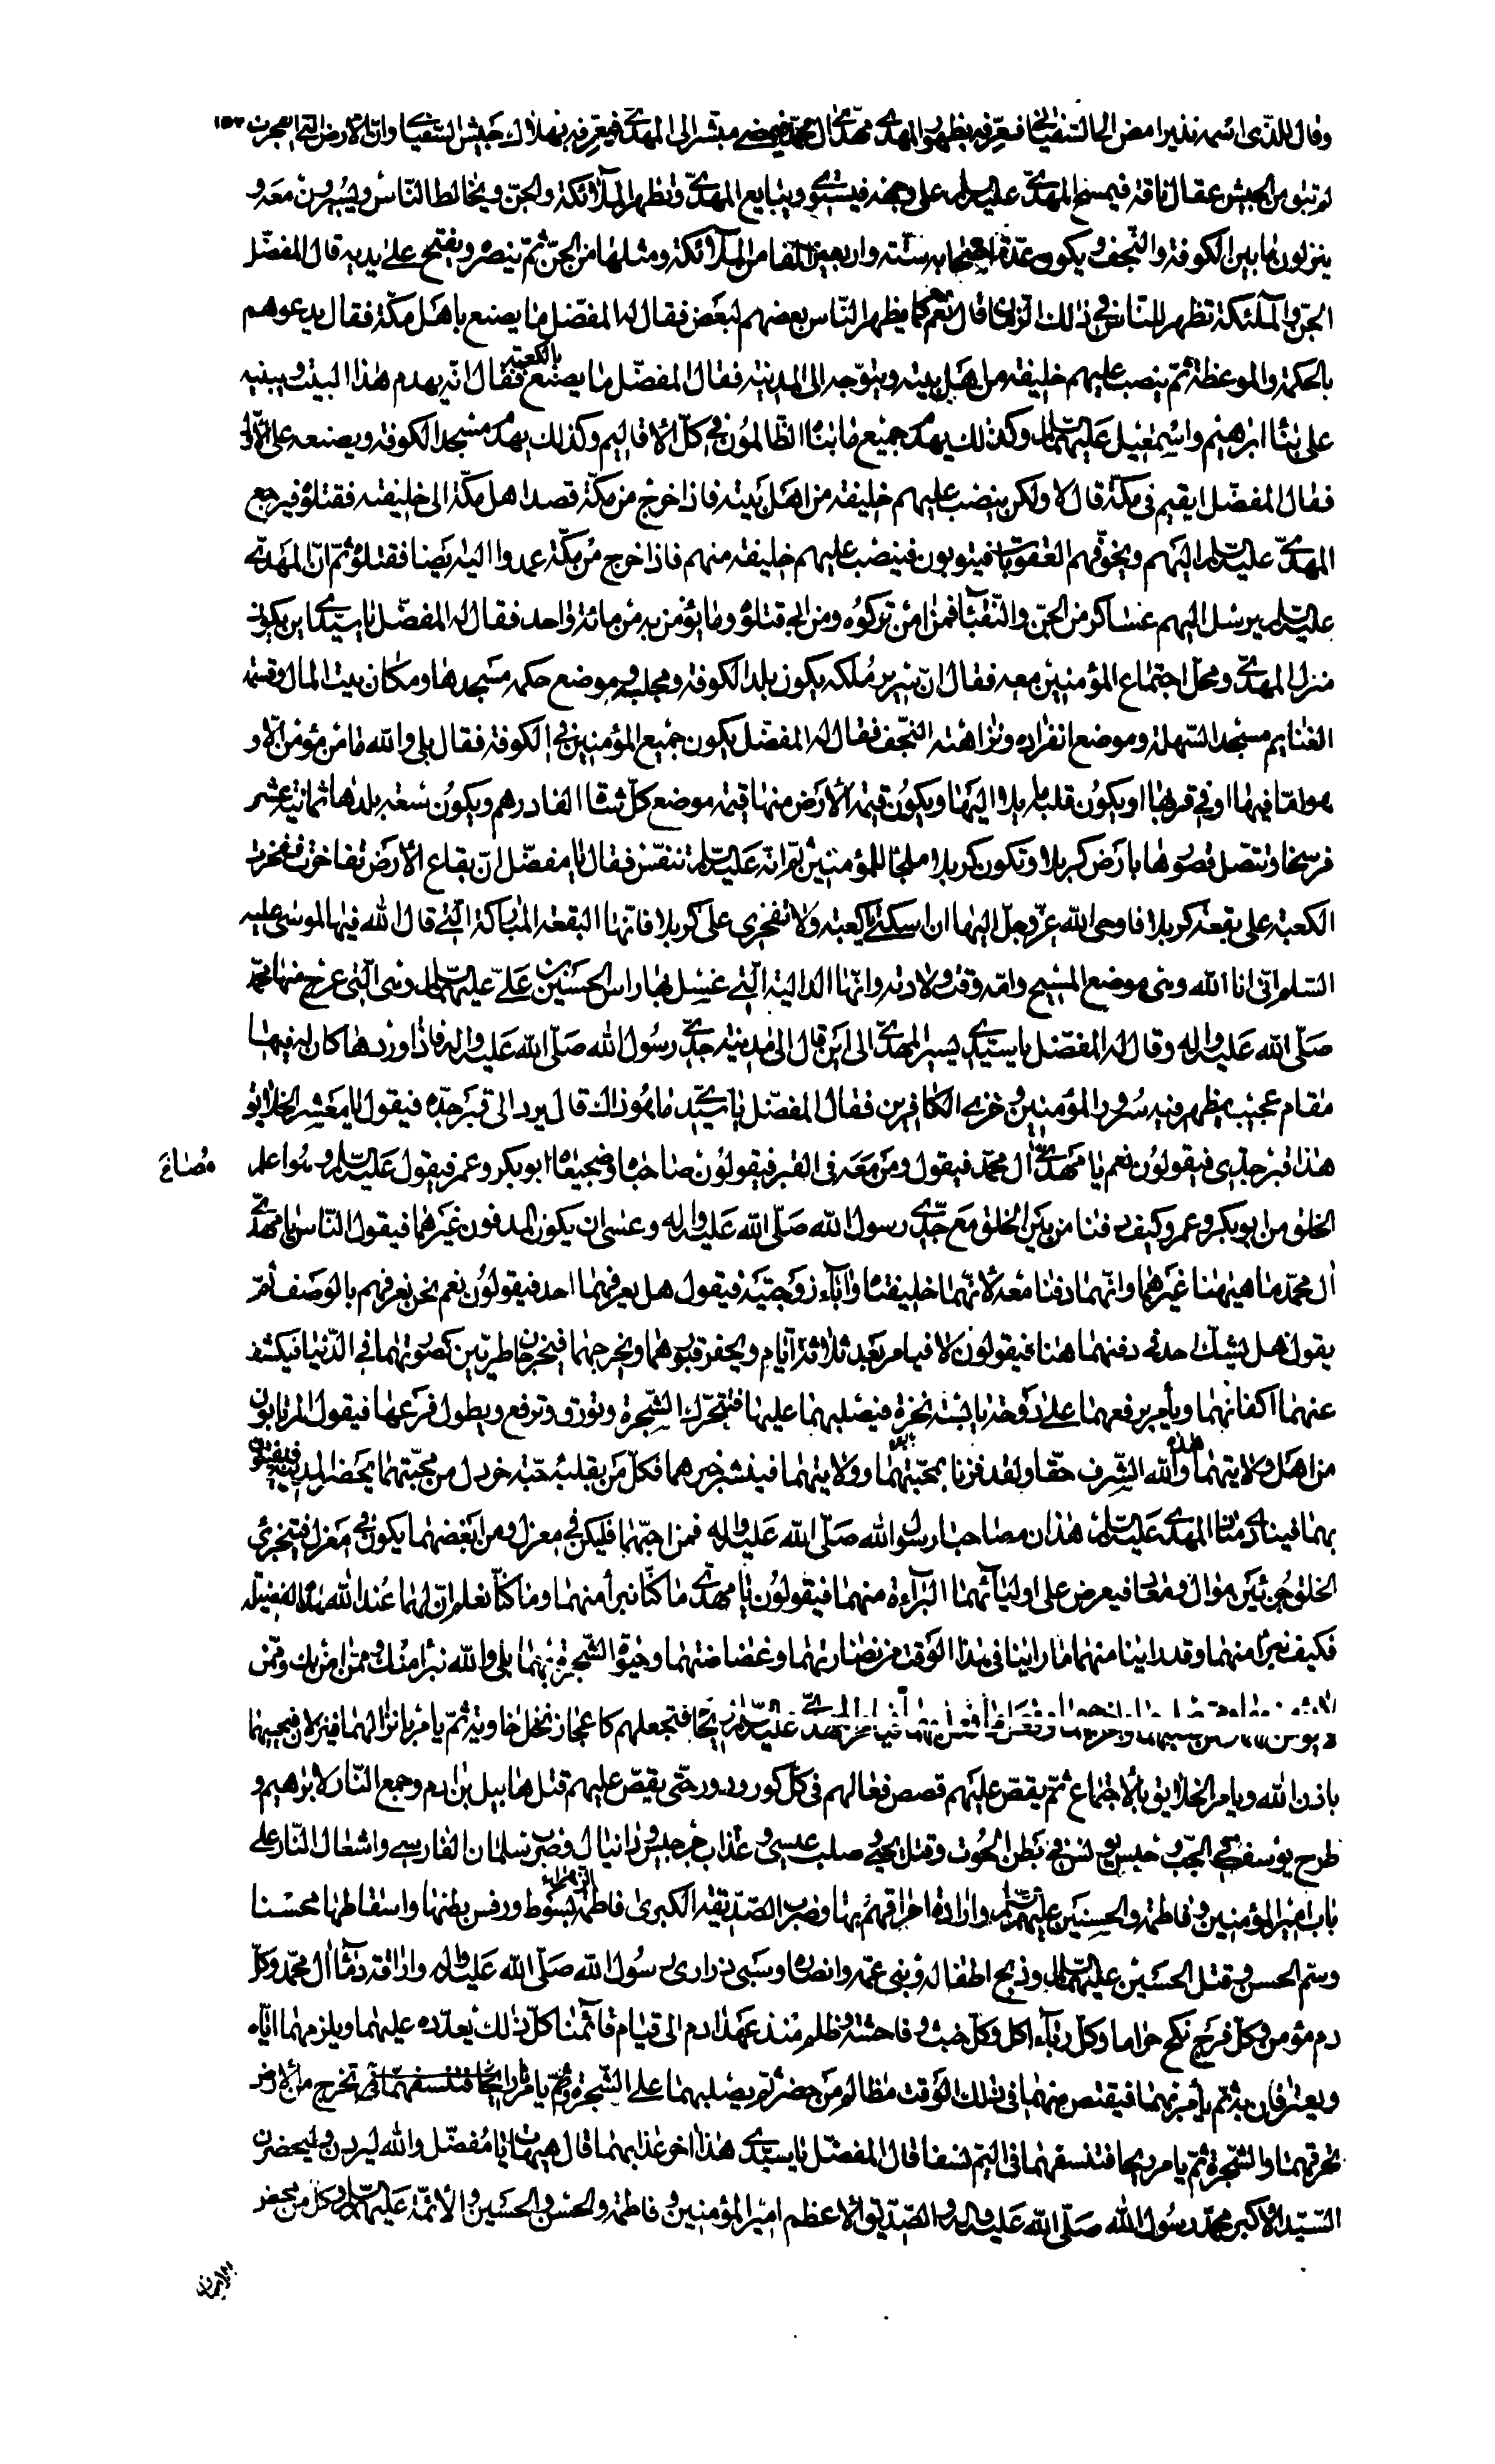 وقال للذى اسمه نذير امض الى السفيانى فعرّفه بظهور المهدى مهدى ال محمد فيمضى مبشر الى المهدى فيعرفه بهلاك جيش السفيانى وان الارض انفجرت ١٥٣
لم تبق من الجيش عقال ناقة فيمسح المهدى عليه السلم على وجهه فيستوى ويبايع المهدى وتظهر الملائكة والجن ويخالط الناس ويسيرون معه و
ينزلون ما بين الكوفة والنجف ويكون عدة اصحابه ستة واربعين الفا من الملائكة ومثلها من الجن ثم ينصره ويفتح على يديه قال المفضل
الجن والملئكة تظهر للناس فى ذلك الزمان قال نعم كما يظهر الناس بعضهم لبعض فقال له المفضل ما يصنع باهل مكة فقال يدعوهم
بالحكمة والموعظة ثم ينصب عليهم خليفة من اهل بيته ويتوجه الى المدينة فقال المفضل ما يصنع بالكعبة فقال انه يهدم هذا البيت ويبنيه
على بناء ابرهيم واسمعيل عليهما السلام وكذلك يهدم جميع ما بناه الظالمون فى كل الاقاليم وكذلك يهدم مسجد الكوفة ويصنعه على الاول
فقال المفضل ايقيم فى مكة قال لا ولكن ينصب عليهم خليفة من اهل بيته فاذا خرج من مكة قصد اهل مكة الى خليفته فقتلوه فيرجع
المهدى عليه السلم اليهم ويخوفهم العقوبات فيتوبون فينصب عليهم خليفة منهم فاذا خرج من مكة عمدوا اليه ايضا فقتلوه ثم ان المهدى
عليه السلم يرسل اليهم عساكر من الجن والنقباء فمن امن تركوه ومن ابى قتلوه وما يؤمن به من مائة واحد فقال له المفضل يا سيدى اين يكون
منزل المهدى ومحل اجتماع المؤمنين معه فقال ان سرير ملكه يكون بلد الكوفة ومجلسه وموضع حكمه مسجدها ومكان بيت المال وقسمة
الغنايم مسجد السهلة وموضع انفراده ونزاهته النجف فقال له المفضل يكون جميع المؤمنين فى الكوفة فقال بلى والله ما من مؤمن الا و
هو اما فيها او فى قربها او يكون قلبه مايلا اليها ويكون قيمة الارض منها قيمة موضع كل شاة الفا درهم ويكون سعة بلدها ثمانية عشر
فرسخا وتتصل قصورها بارض كربلا وتكون كربلا ملجأ للمؤمنين ثم انه عليه السلم تنفس فقال يا مفضل ان بقاع الارض تفاخرت ففخرت
الكعبة على بقعة كربلا فاوحى الله عز وجل اليها ان اسكتى يا كعبة ولا تفخرى على كربلا فانها البقعة المباركة التى قال الله فيها لموسى عليه
السلم انى انا الله وهى موضع المسيح وامه وقت ولادته وانها الدالية التى غسل بها راس الحسين بن على عليهما السلام وهى التى عرج منها محمد
صلى الله عليه واله وقال له المفضل يا سيدى يسير المهدى الى اين قال الى مدينة جدى رسول الله صلى الله عليه واله فاذا وردها كان له فيها
مقام عجيب يظهر فيه سرور المؤمنين وخزى الكافرين فقال المفضل يا سيدى ما هو ذاك قال يرد الى قبر جده فيقول يا معشر الخلايق
هذا قبر جدى فيقولون نعم يا مهدى ال محمد فيقول ومن معه فى القبر فيقولون صاحباه وضجيعاه ابو بكر وعمر فيقول عليه السلم وهو اعلم مصاخ
الخلق من ابو بكر وعمر وكيف دفنا من بين الخلق مع جدى رسول الله صلى الله عليه واله وعسى ان يكون المدفون غيرهما فيقول الناس يا مهدى
ال محمد ما هيهنا غيرهما وانهما دفنا معه لانهما خليفتاه وآباء زوجتيه فيقول هل يعرفهما احد فيقولون نعم نحن نعرفهم بالوصف ثم
يقول هل يشك احد فى دفنهما هنا فيقولون لا فيامر بعد ثلاثة ايام ويحفر قبورهما ويخرجهما فيخرجان طريين كصورتهما فى الدنيا فيكشف
عنهما اكفانهما ويأمر برفعهما على دوحة يابسة نخرة فيصلبهما عليها فتتحرك الشجرة وتورق وترفع ويطول فرعها فيقول المرتابون
من اهل ولايتهما هذه والله الشرف حقا ولقد فزنا بمحبتهما وولايتهما فينشر خبرهما فكل من بقلبه حبة خردل من محبتهما يحضر المدينة فيفتنون
بهما فينادى منادى المهدى عليه السلم هذان صاحبا رسول الله صلى الله عليه واله فمن احبهما فليكن فى معزل ومن ابغضهما يكون فى معزل فيتجزى
الخلق جزئين موال ومعاد فيعرض على اوليائهما البراءة منهما فيقولون يا مهدى ما كنا نبرأ منهما وما كنا نعلم ان لهما عند الله هذه الفضيلة
فكيف نبرأ منهما وقد راينا منهما ما راينا فى هذا الوقت من نضارتهما وغضاضتهما وحيوة الشجرة بهما بلى والله نبرأ منك وممن امن بك وممن
لا يؤمن بهما عليه السلم ريحا فتجعلهم كاعجاز نخل خاوية ثم يامر بانزالهما فينزلان فيحييهما
باذن الله ويامر الخلايق بالاجتماع ثم يقص عليهم قصص فعالهم فى كل كور ودور حتى يقص عليهم قتل هابيل بن ادم وجمع النار لابرهيم و
طرح يوسف فى الجب وحبس يونس فى بطن الحوت وقتل يحيى وصلب عيسى وعذاب جرجيس ودانيال وضرب سلمان الفارسى واشعال النار على
باب امير المؤمنين وفاطمة والحسنين عليهم السلم وارادة احراقهم بها وضرب الصديقة الكبرى فاطمة الزهراء بسوط ورفس بطنها واسقاطها محسنا
وسم الحسن وقتل الحسين عليهما السلام وذبح اطفاله وبنى عمه وانصاره وسبى ذرارى رسول الله صلى الله عليه واله واراقة دماء ال محمد وكل
دم مؤمن وكل فرج نكح حراما وكل رباء اكل وكل خبث وفاحشة وظلم منذ عهد ادم الى قيام قائمنا كل ذلك يعدده عليهما ويلزمهما اياه
ويعترفان به ثم يأمر بهما فيقتص منهما فى ذلك الوقت مظالم من حضر ثم يصلبهما على الشجرة ثم يامر نارا تخرج من الارض
تحرقهما والشجرة ثم يامر ريحا فتنسفهما فى اليم نسفا قال المفضل يا سيدى هذا اخر عذابهما قال هيهات يا مفضل والله ليردن وليحضرن
السيد الاكبر محمد رسول الله صلى الله عليه واله والصديق الاعظم امير المؤمنين وفاطمة والحسن والحسين والائمة عليهم السلم وكل من محض
الايمان